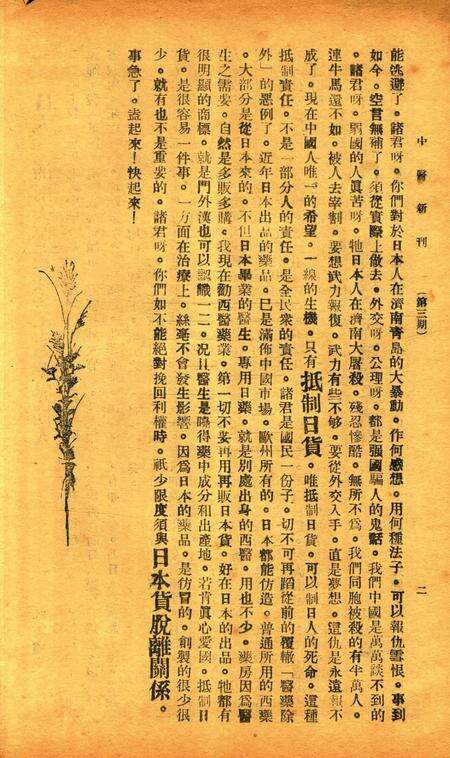 中醫新刊
（第三期）
二
能逃避了。諸君呀。你們對於日本人在濟南青島的大暴動。作何感想。用何種法子。可以報仇雪恨。事到
如今。空言無補了。須從實際上做去。外交呀。公理呀。都是强國騙人的鬼話。我們中國是萬萬談不到的
。諸君呀。弱國的人眞苦呀。牠日本人在濟南大屠殺。殘忍慘酷。無所不爲。我們同胞被殺的有半萬人。
連牛馬還不如。被人去宰割。要想武力報復。武力有些不够。要從外交入手。直是夢想。這仇是永遠報不
成了。現在中國人唯一的希望。一線的生機。只有抵制日貨。唯抵制日貨。可以制日人的死命。這種
抵制責任。不是一部分人的責任。是全民衆的責任。諸君是國民一份子。切不可再蹈從前的覆轍「醫藥除
外」的惡例了。近年日本出品的藥品。已是滿佈中國市塲。歐州所有的。日本都能仿造。普通所用的西藥
。大部分是從日本來的。不但日本畢業的醫生。專用日藥。就是別處出身的西醫。用也不少。藥房因爲醫
生之需要。自然是多販多購。我現在勸西醫藥業。第一切不要再用再販日本貨。好在日本的出品。牠都有
很明顯的商標。就是門外漢也可以認識一二。况且醫生是曉得藥中成分和出產地。若肯眞心愛國。抵制日
貨。是很容易一件事。一方面在治療上。絲毫不會發生影響。因爲日本的藥品。是仿冒的。創製的很少很
少。就有也不是重要的。諸君呀。你們如不能絕對挽回利權時。祇少限度須與日本貨脫離關係。
事急了。盍起來！快起來！